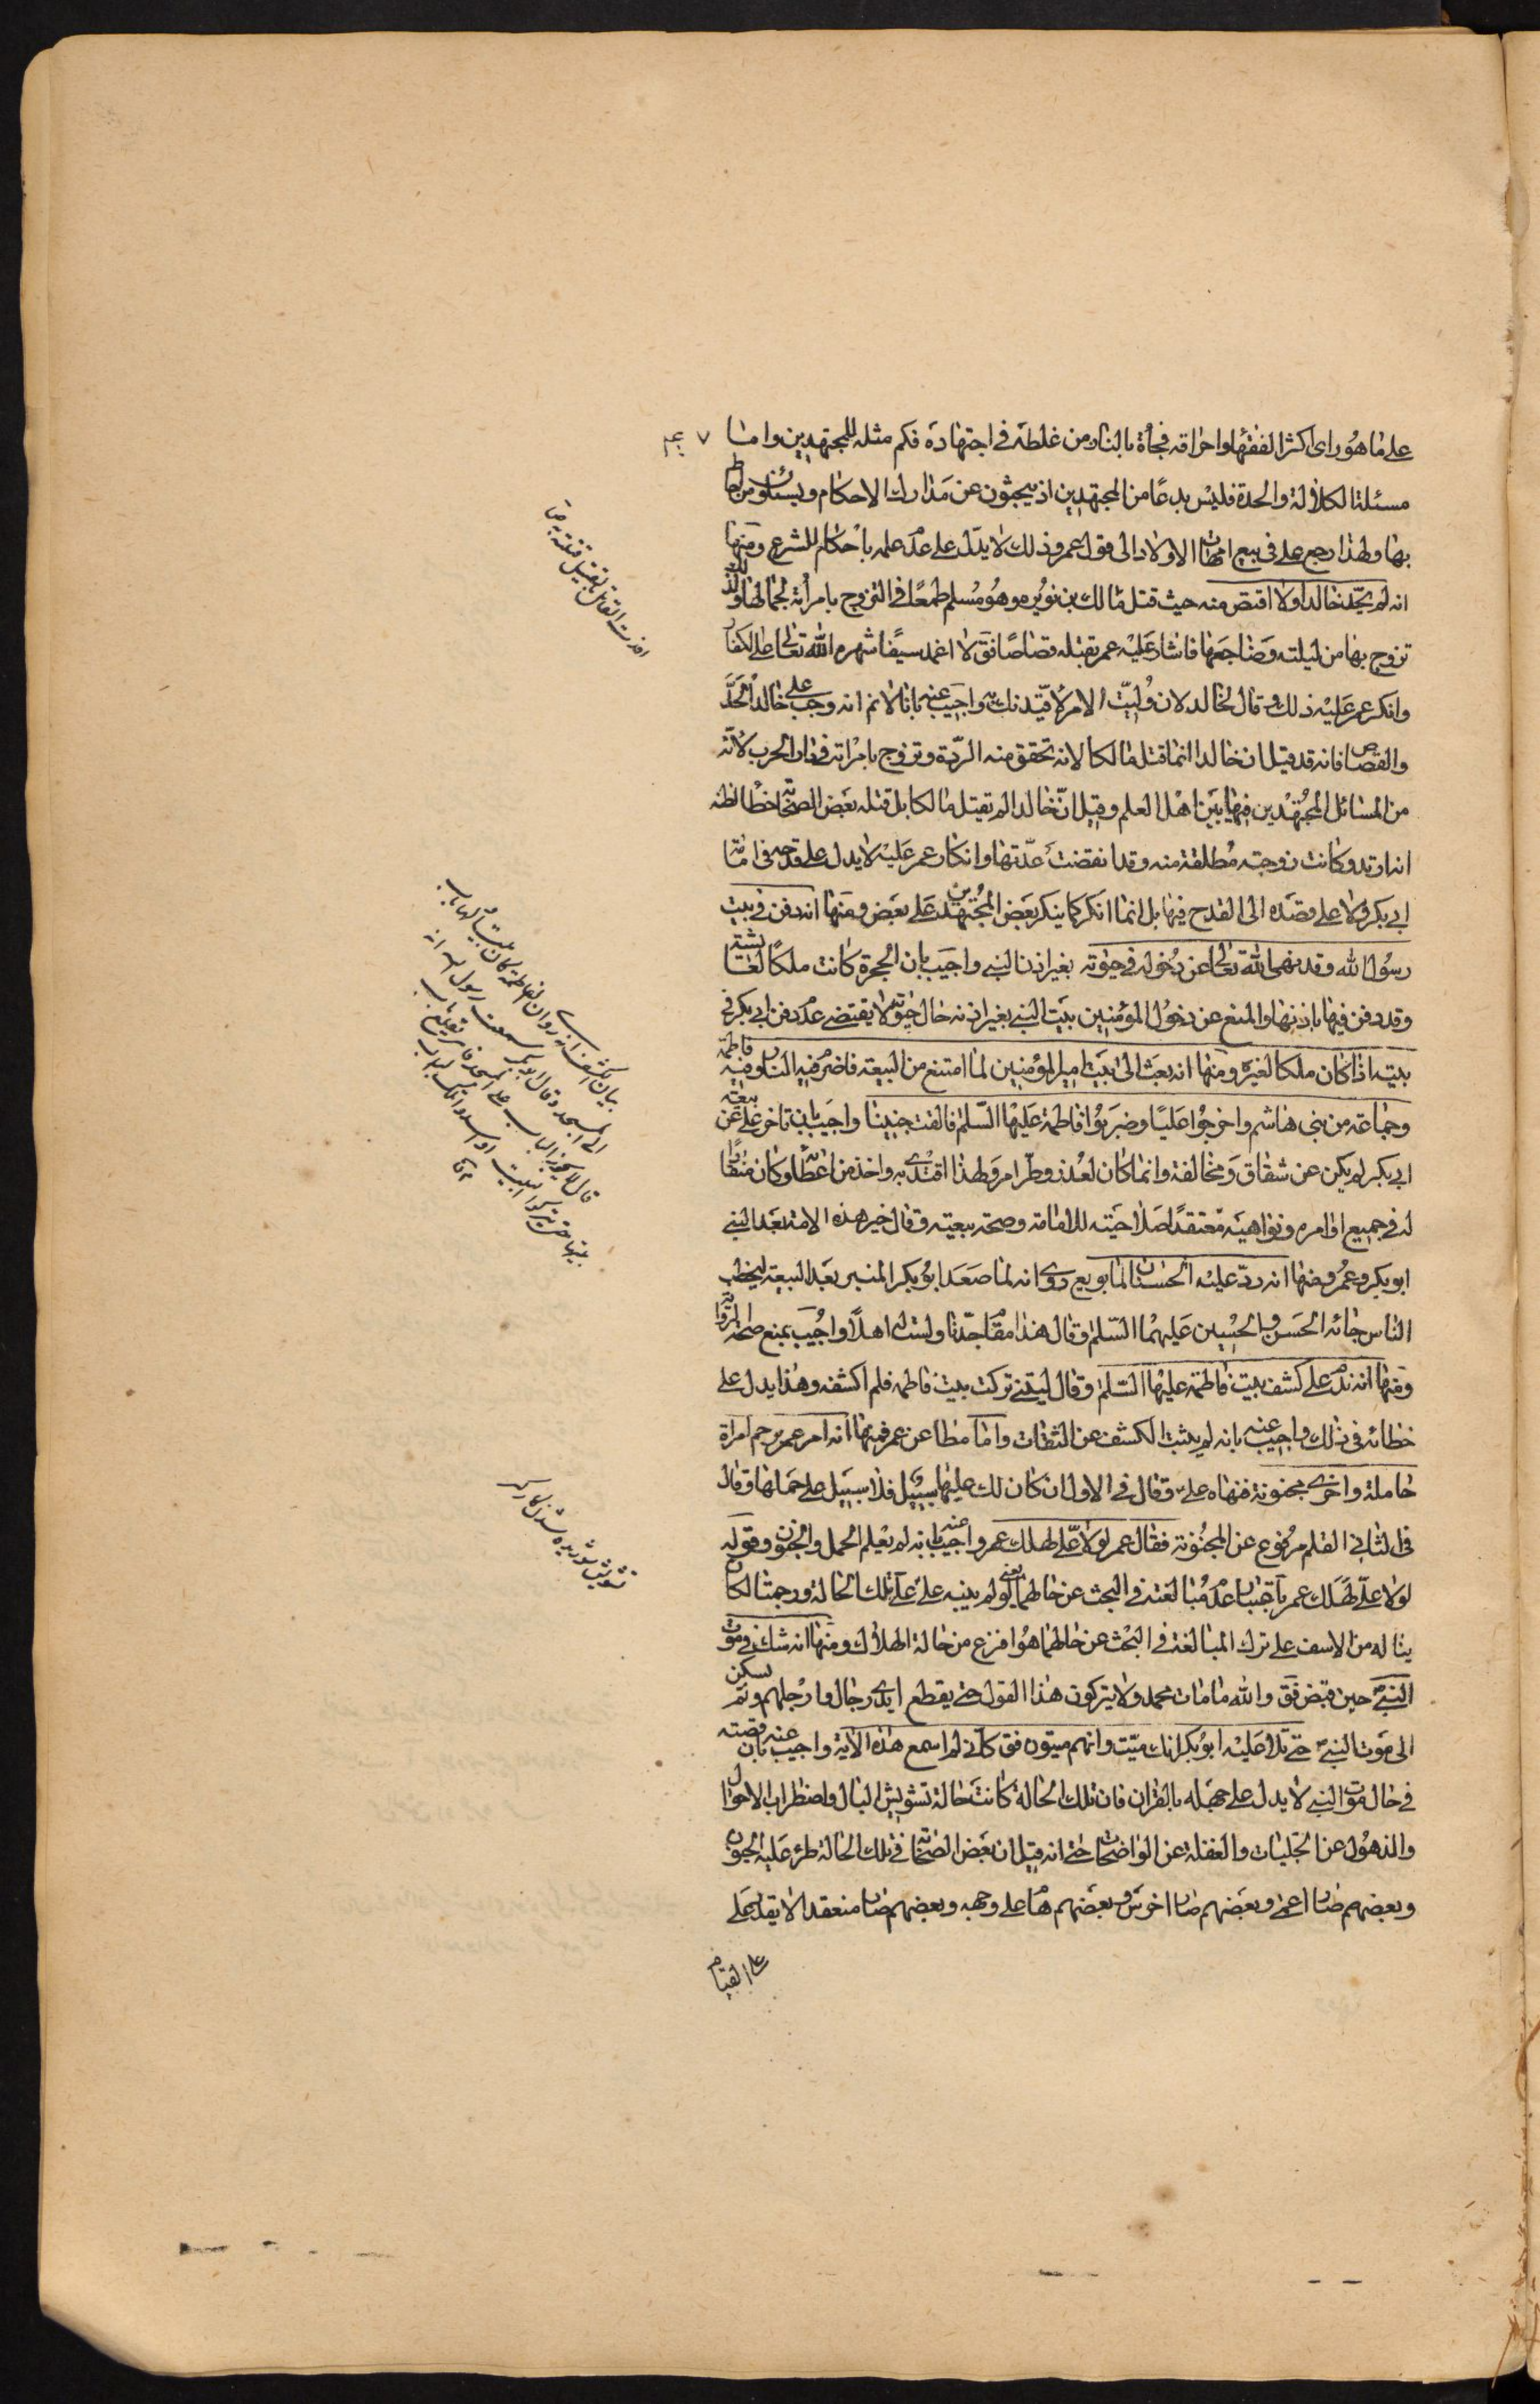 على ما هو راى اكثر الفقهاء واحراقه فجأة بالنار من غلطه فى اجتهاده فكم مثله للمجتهدين واما
مسئلة الكلالة والجدة فليس بدعا من المجتهدين اذ يبحثون عن مدارك الاحكام ويسئلون من احاط
بها ولهذا رجع على فى بيع امهات الاولاد الى قول عمر وذلك لا يدل على عدم علمه باحكام الشرع ومنها
انه لم يحد خالدا ولا اقتص منه حيث قتل مالك بن نويره وهو مسلم طمعا فى التزوج بامرأته لجمالها ولذلك
تزوج بها من ليلته وضاجعها فاشار عليه عمر بقتله قصاصا فق لا اغمد سيفا شهره الله تعالى على الكفار
وانكر عمر عليه ذلك وقال لخالد لان وليت الامر لاقيدنك به واجيب عنه بانا لا نم انه وجب على خالد الحد
والقصاص فانه قد قيل ان خالدا انما قتل مالكا لانه تحقق منه الردة وتزوج بامراته فى دار الحرب لانه
من المسائل المجتهدين فيها بين اهل العلم وقيل ان خالدا لم يقتل مالكا بل قتله بعض الصحابة خطأ لظنه
انه ارتد وكانت زوجته مطلقة منه وقد انقضت عدتها وانكار عمر عليه لا يدل على قدحه فى امامة
ابى بكر ولا على قصده الى القدح فيها بل انما انكر كما ينكر بعض المجتهدين على بعض ومنها انه دفن فى بيت
رسول الله وقد نهى الله تعالى عن دخوله فى حيوته بغير اذن النبى واجيب بان الحجرة كانت ملكا لعايشة
وقد دفن فيها باذنها والمنع عن دخول المؤمنين بيت النبى بغير اذنه حال حيوته لا يقتضى عدم دفن ابى بكر فى
بيته اذا كان ملكا لغيره ومنها انه بعث الى بيت امير المؤمنين لما امتنع من البيعة فاضرم فيه النار وفيه فاطمة
وجماعة من بنى هاشم واخرجوا عليا وضربوا فاطمة عليها السلم فالقت جنينا واجيب بان تاخر على عن بيعة
ابى بكر لم يكن عن شقاق ومخالفة وانما كان لعذر وطرأ امر ولهذا اقتدى به واخذ من اعطائه وكان منقادا
له فى جميع اوامره ونواهيه معتقدا صلاحيته للامامة وصحة بيعته وقال خير هذه الامة بعد النبى
ابو بكر وعمر ومنها انه رد عليه الحسنان لما بويع روى انه لما صعد ابو بكر المنبر بعد البيعة ليخطب
الناس جائه الحسن والحسين عليهما السلم وقال هذا مقام جدنا ولست له اهلا واجيب بمنع صحة الرواية
ومنها انه ندم على كشف بيت فاطمة عليها السلم وقال ليتنى تركت بيت فاطمه فلم اكشفه وهذا يدل على
خطائه فى ذلك واجيب عنه بانه لم يثبت الكشف عن الثقات واما مطاعن عمر فمنها انه امر عمر برجم امراة
حاملة واخرى مجنونة فنهاه على وقال فى الاول ان كان لك عليها سبيل فلا سبيل على حملها وقال
فى الثانى القلم مرفوع عن المجنونه فقال عمر لولا على لهلك عمر واجيب عنه بانه لم يعلم الحمل والجنون وقوله
لولا على لهلك عمر باعتبار عدم مبالغته فى البحث عن حالهما يعنى لو لم ينبه على على تلك الحالة ورجمتا لكان
يناله من الاسف على ترك المبالغة فى البحث عن حالهما هو افزع من حالة الهلاك ومنها انه شك فى موت
النبى حين قبض فق والله ما مات محمد ولا يتركون هذا القول حتى يقطع ايدى رجال وارجلهم ولم يسكن
الى موت النبى حتى تلا عليه ابو بكر انك ميت وانهم ميتون فق كانى لم اسمع هذه الاية واجيب عنه بان قصته
فى حال موت النبى لا يدل على جهله بالقران فان تلك الحالة كانت حالة تشويش البال واضطراب الاحوال
والذهول عن الجليات والغفلة عن الواضحات حتى انه قيل ان بعض الصحابة فى تلك الحالة طرء عليه الجنون
وبعضهم صار اعمى وبعضهم صار اخرس وبعضهم هام على وجهه وبعضهم صار مقعدا لا يقدر على
على القيام